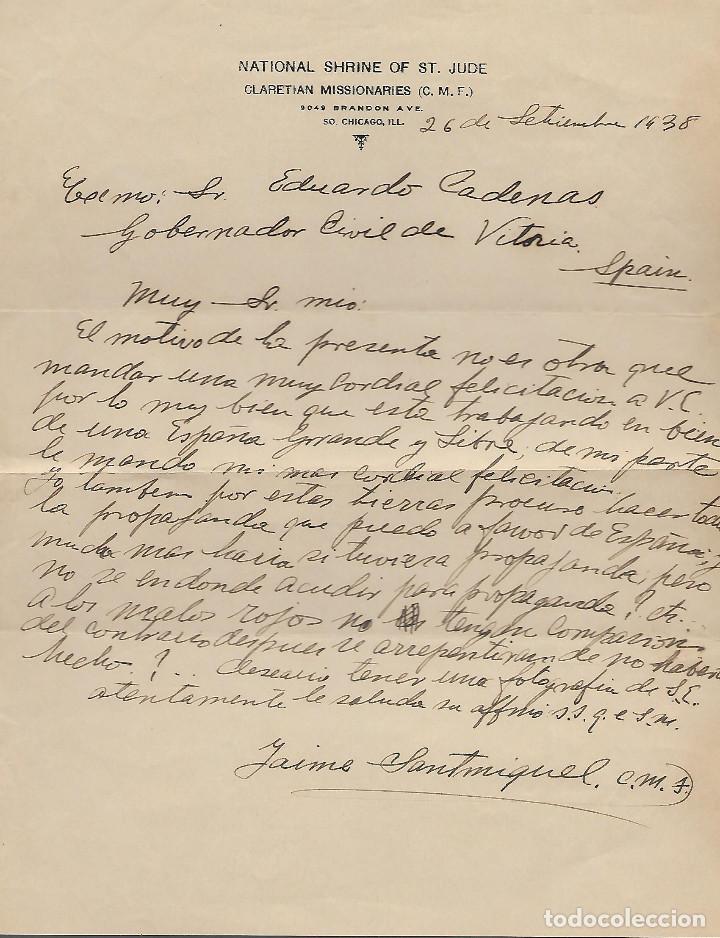 NATIONAL SHRINE OF ST. JUDE
CLARETIAN MISSIONARIES (C. M. F.)
9049 BRANDON AVE.
SO. CHICAGO, ILL.
26 de Setiembre 1938
Exmo: Sr. Eduardo Cadenas
Gobernador Civil de Vitoria.
Spain.
Muy Sr. mio:
El motivo de la presenta no es otra que
mandar una muy cordial felicitacion a V.E.
por lo muy bien que esta trabajando en bien
de una España Grande y Libre; de mi parte
le mando mi mas cordial felicitacion.
Yo tambien por estas tierras procuro hacer toda
la propaganda que puedo a favor de España; y
mucha mas haria si tuviera propaganda; pero
no se en donde acudir para propaganda?
A los malos rojos no tengan compasion
del contrario despues se arrepentiran de no haberlo
hecho?... desearia tener una fotografia de S.E.
atentamente le saluda su affmo s.s. q e s.m.
Jaime Santmiquel. C.M.F.
todocoleccion